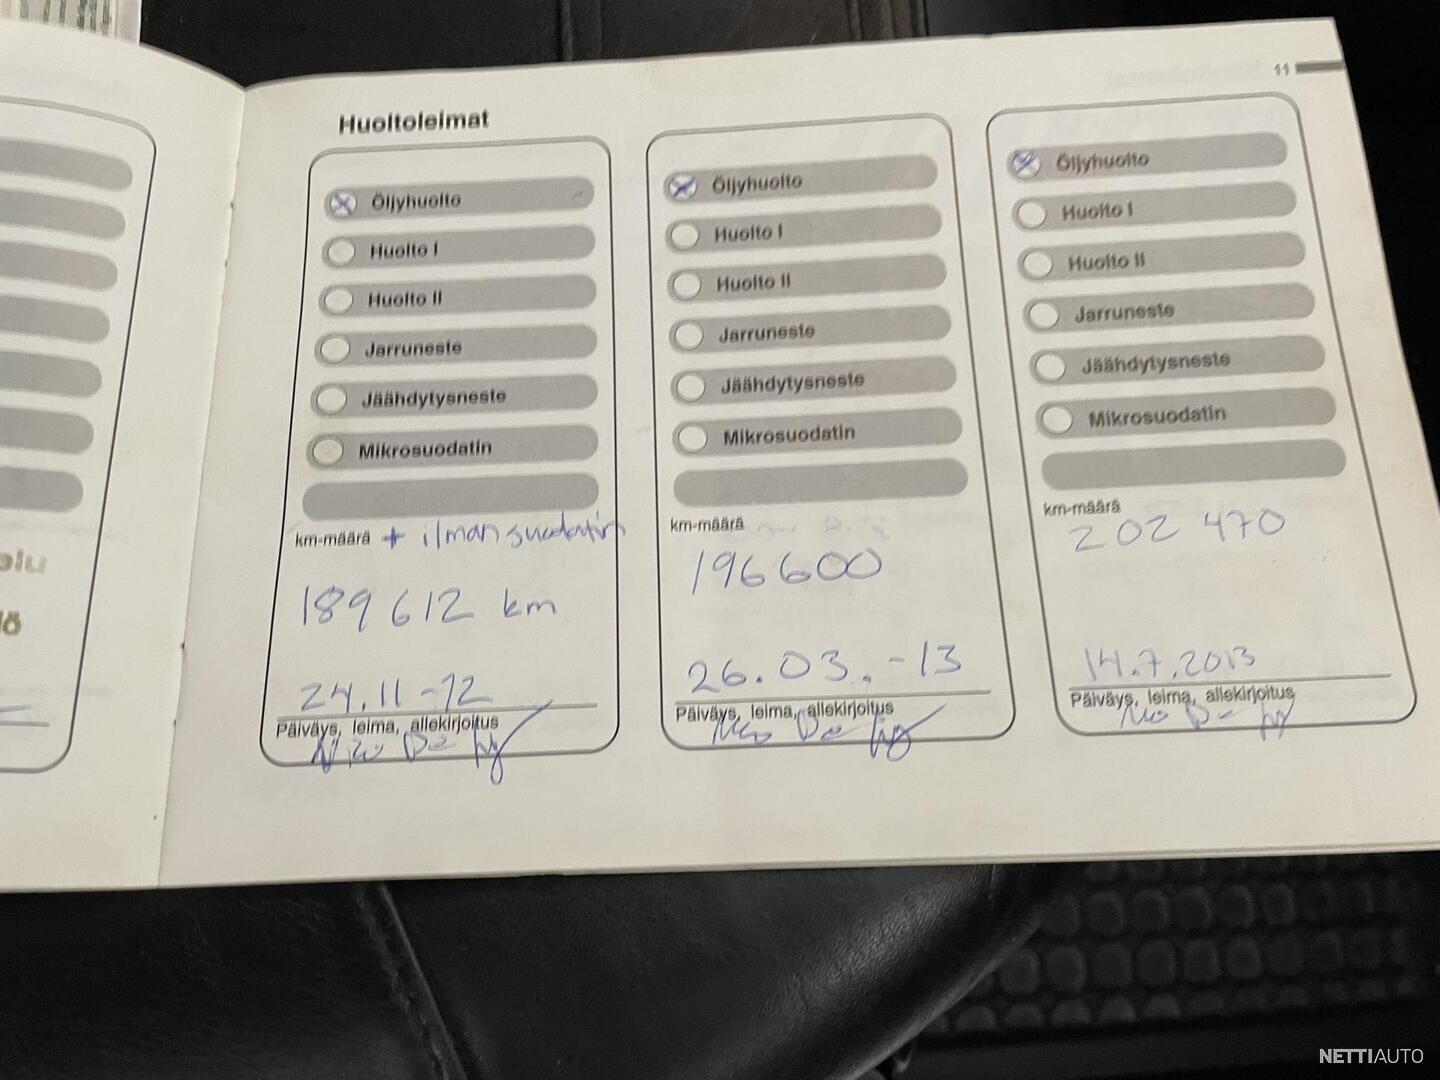 11
Huoltoleimat
Öljyhuolto
Huolto I
Huolto II
Jarruneste
Jäähdytysneste
Mikrosuodatin
km-määrä + ilmansuodatin
189 612 km
24.11 -12
Päiväys, leima, allekirjoitus
Öljyhuolto
Huolto I
Huolto II
Jarruneste
Jäähdytysneste
Mikrosuodatin
km-määrä
196600
26.03.-13
Päiväys, leima, allekirjoitus
Öljyhuolto
Huolto I
Huolto II
Jarruneste
Jäähdytysneste
Mikrosuodatin
km-määrä
202 470
14.7.2013
Päiväys, leima, allekirjoitus
NETTIAUTO